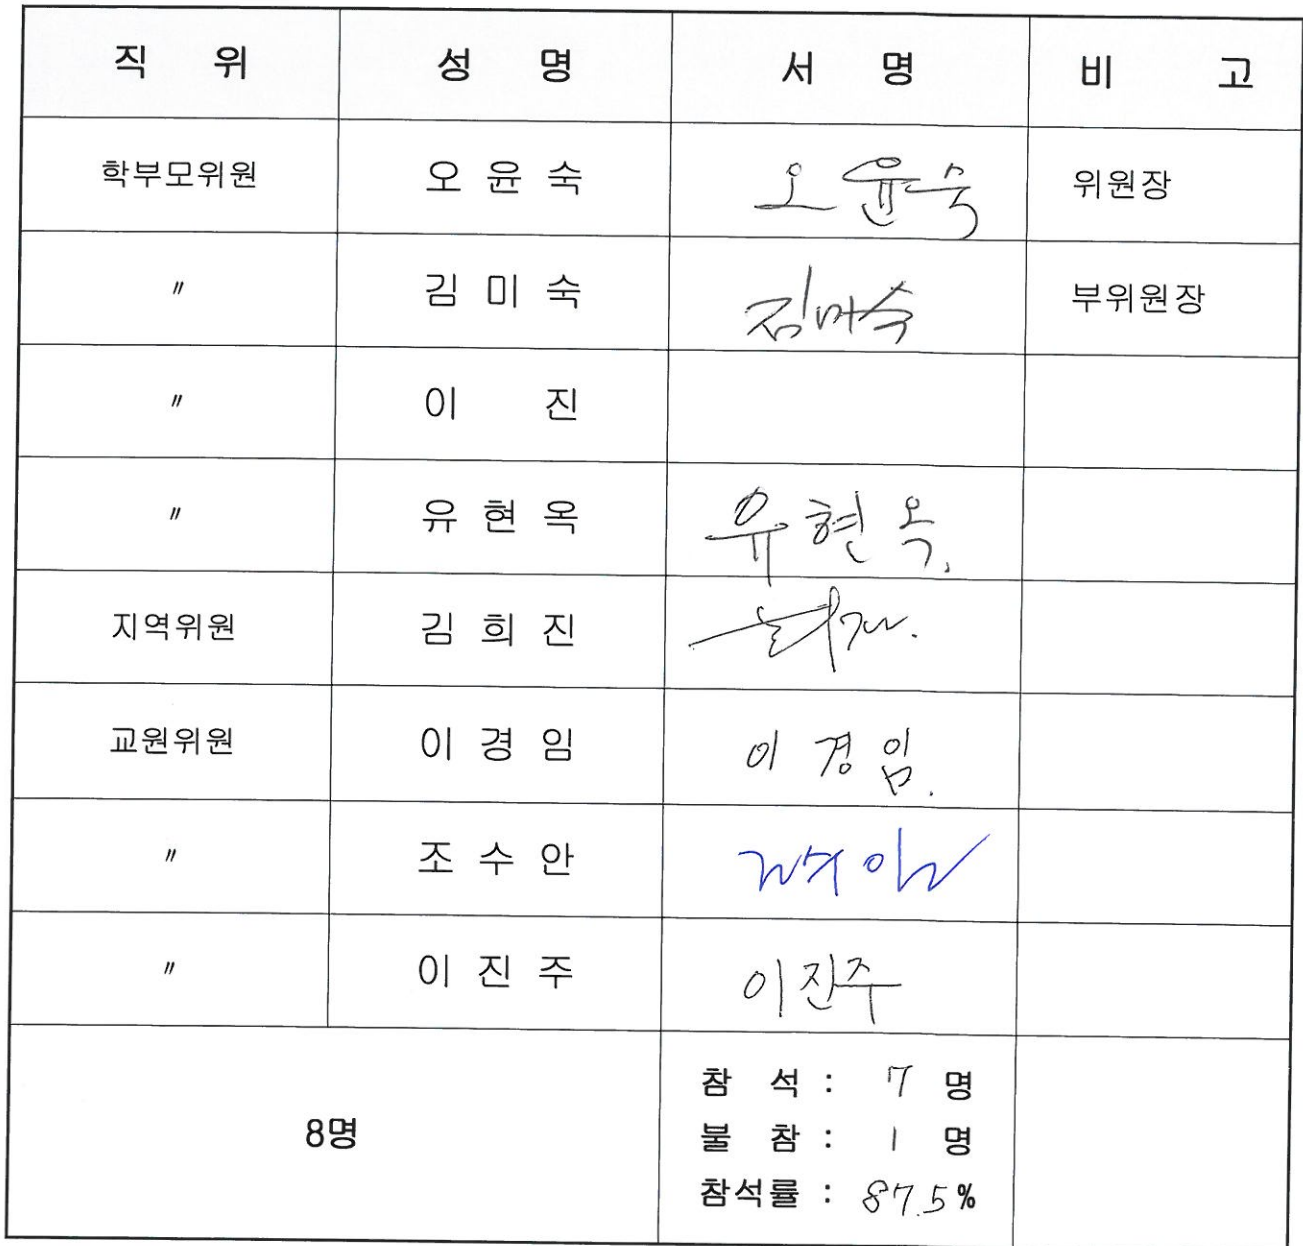 직 위 성 명 서 명 비 고
학부모위원 오 윤 숙 오 윤숙 위원장
〃 김 미 숙 김미숙 부위원장
〃 이 진
〃 유 현 옥 유 현 옥.
지역위원 김 희 진
교원위원 이 경 임 이 경 임.
〃 조 수 안
〃 이 진 주 이진주
8명
참 석 : 7 명
불 참 : 1 명
참석률 : 87.5%